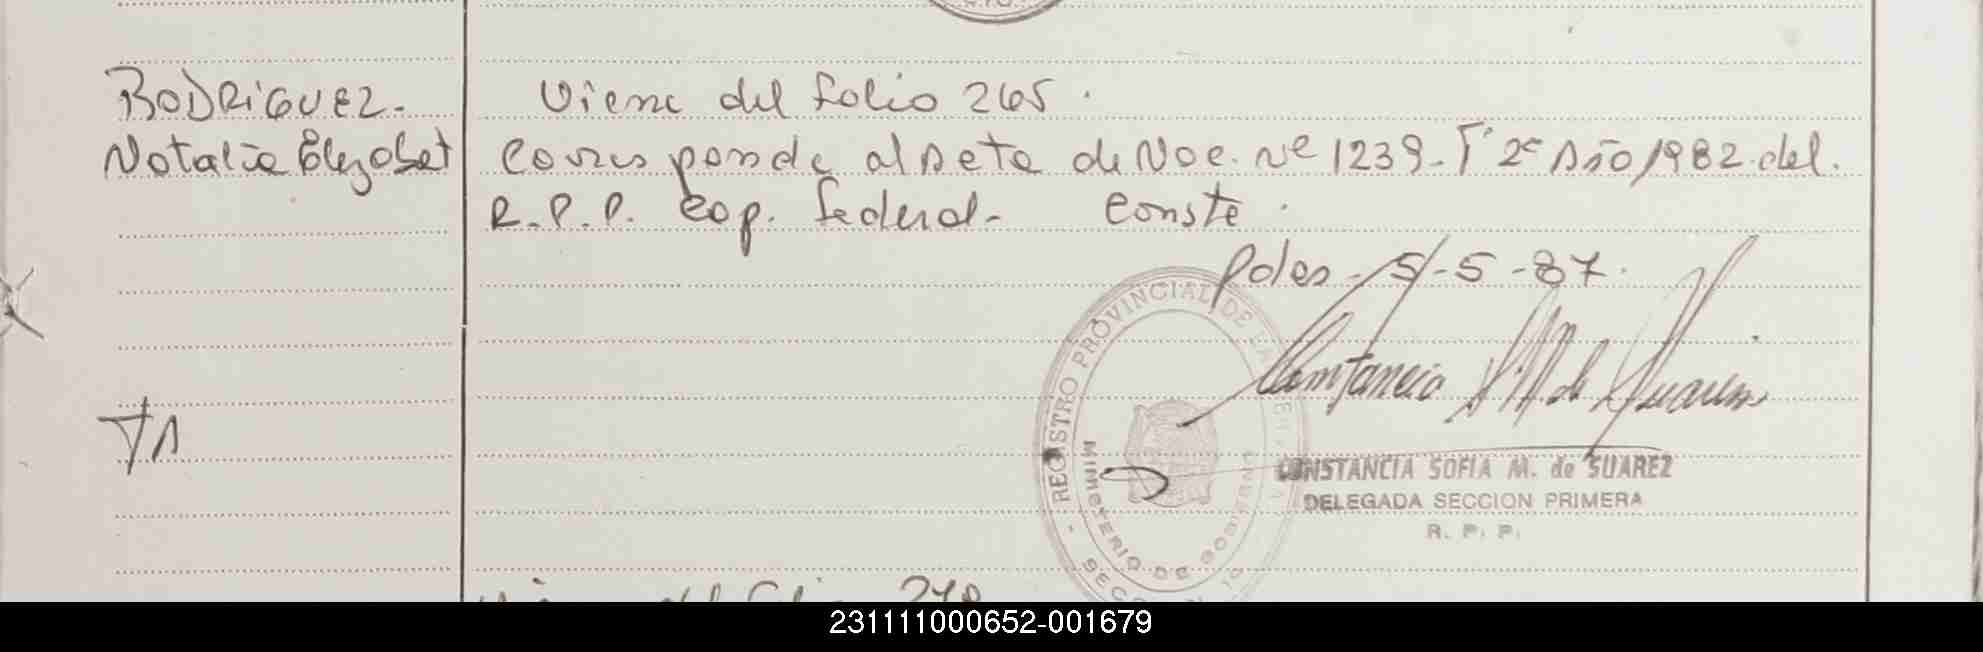 RODRIGUEZ.
Natalia Elizabet
Viene del folio 265.
Corresponde al Acta de Nac. nº 1239. Tº 2º Año 1982. del.
R.P.P. Cap. federal. Conste.
Pdas. 5-5-87.
Constancia S. M. de Suarez
REGISTRO PROVINCIAL DE LAS PERSONAS
MINISTERIO DE GOBIERNO
CONSTANCIA SOFIA M. de SUAREZ
DELEGADA SECCION PRIMERA
R. P. P.
231111000652-001679